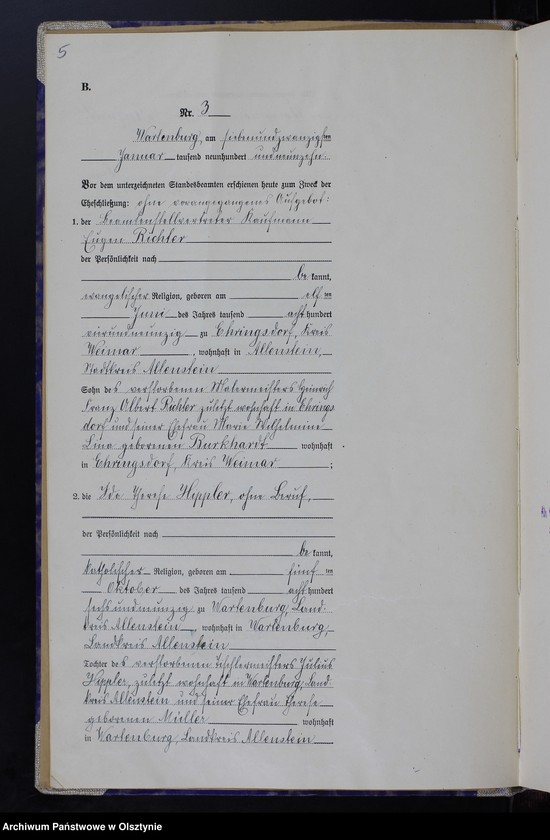 5
B.
Nr. 3
Wartenburg, am siebenundzwanzigsten
Januar tausend neunhundert undneunzehn.
Vor dem unterzeichneten Standesbeamten erschienen heute zum Zweck der
Eheschließung: ohne vorangegangenes Aufgebot:
1. der Beamtenstellvertreter Kaufmann
Eugen Richter
der Persönlichkeit nach
be kannt,
evangelischer Religion, geboren am elf ten
Juni des Jahres tausend acht hundert
vierundneunzig zu Ehringsdorf, Kreis
Weimar, wohnhaft in Allenstein,
Stadtkreis Allenstein
Sohn des verstorbenen Malermeisters Heinrich
Franz Albert Richter zuletzt wohnhaft in Ehrings
dorf und seiner Ehefrau Marie Wilhelmine
Lina geborenen Burkhardt wohnhaft
in Ehringsdorf, Kreis Weimar ;
2. die Ida Therese Hippler, ohne Beruf,
der Persönlichkeit nach
be kannt,
katholischer Religion, geboren am fünf ten
Oktober des Jahres tausend acht hundert
sechsundneunzig zu Wartenburg, Land-
kreis Allenstein, wohnhaft in Wartenburg,
Landkreis Allenstein
Tochter des verstorbenen Tischlermeisters Julius
Hippler, zuletzt wohnhaft in Wartenburg, Land
kreis Allenstein und seiner Ehefrau Therese
geborenen Müller wohnhaft
in Wartenburg, Landkreis Allenstein
Archiwum Państwowe w Olsztynie